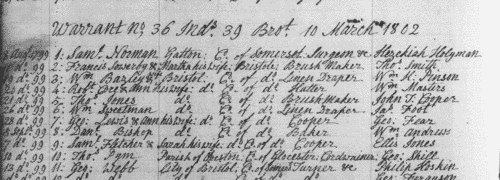 Warrant No. 36 Inds. 39 Brot. 10 March 1802
1: Saml. Norman Yatton Co. of Somerset Surgeon & Hezekiah Holyman
2: Francis & Martha his wife Bristol Brush Maker Thos. Smith
do. 99 3: Wm. Bazley do. Bristol Co. of do. Linen Draper Wm. K. Pinson
do. 99 4: Robt. & Ann his wife do. Co. of do. Hatter Wm. Masters
do. 99 5: Thos. Jones do. Co. of do. Brush Maker John T. Cooper
do. 99 6: Wm. do. Co. of do. Linen Draper Jas. Foot
do. 99 7: Geo. Lewis & Ann his wife do. Co. of do. Cooper Geo. Fear
99 8: Danl. Bishop do. Co. of do. Baker Wm. Andrews
7 do. 99 9: Saml. Fletcher & Sarah his wife do. Co. of do. Cooper Ellis Jones
10 do. 99 10: Thos. Pym Parish of Co. of Glocester Cordwainer Geo.
13 do. 99 11: Geo. Webb City of Bristol Co. of Turner & Philip Hoskin
Geo. Ferguson